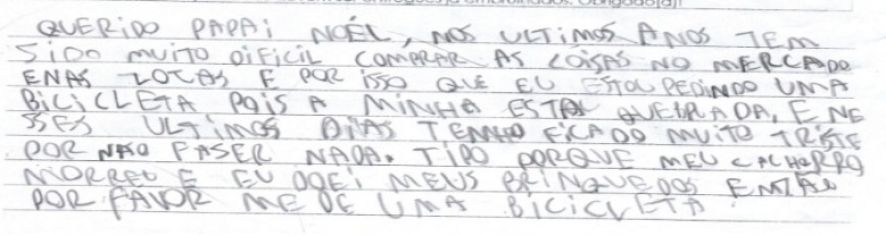 QUERIDO PAPAI NOÉL, NOS ULTIMOS ANOS TEM
SIDO MUITO DIFICIL COMPRAR AS COISAS NO MERCADO
E NAS LOJAS E POR ISSO QUE EU ESTOU PEDINDO UMA
BICICLETA POIS A MINHA ESTA QUEBRADA, E NE
SSES ULTIMOS DIAS TENHO FICADO MUITO TRISTE
POR NÃO FASER NADA. TIPO PORQUE MEU CACHORRO
MORREU E EU DOEI MEUS BRINQUEDOS ENTÃO
POR FAVOR ME DE UMA BICICLETA